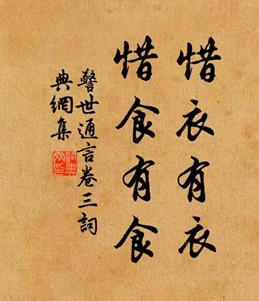 惜衣有衣
惜食有食
警世通言卷三詞
典網集